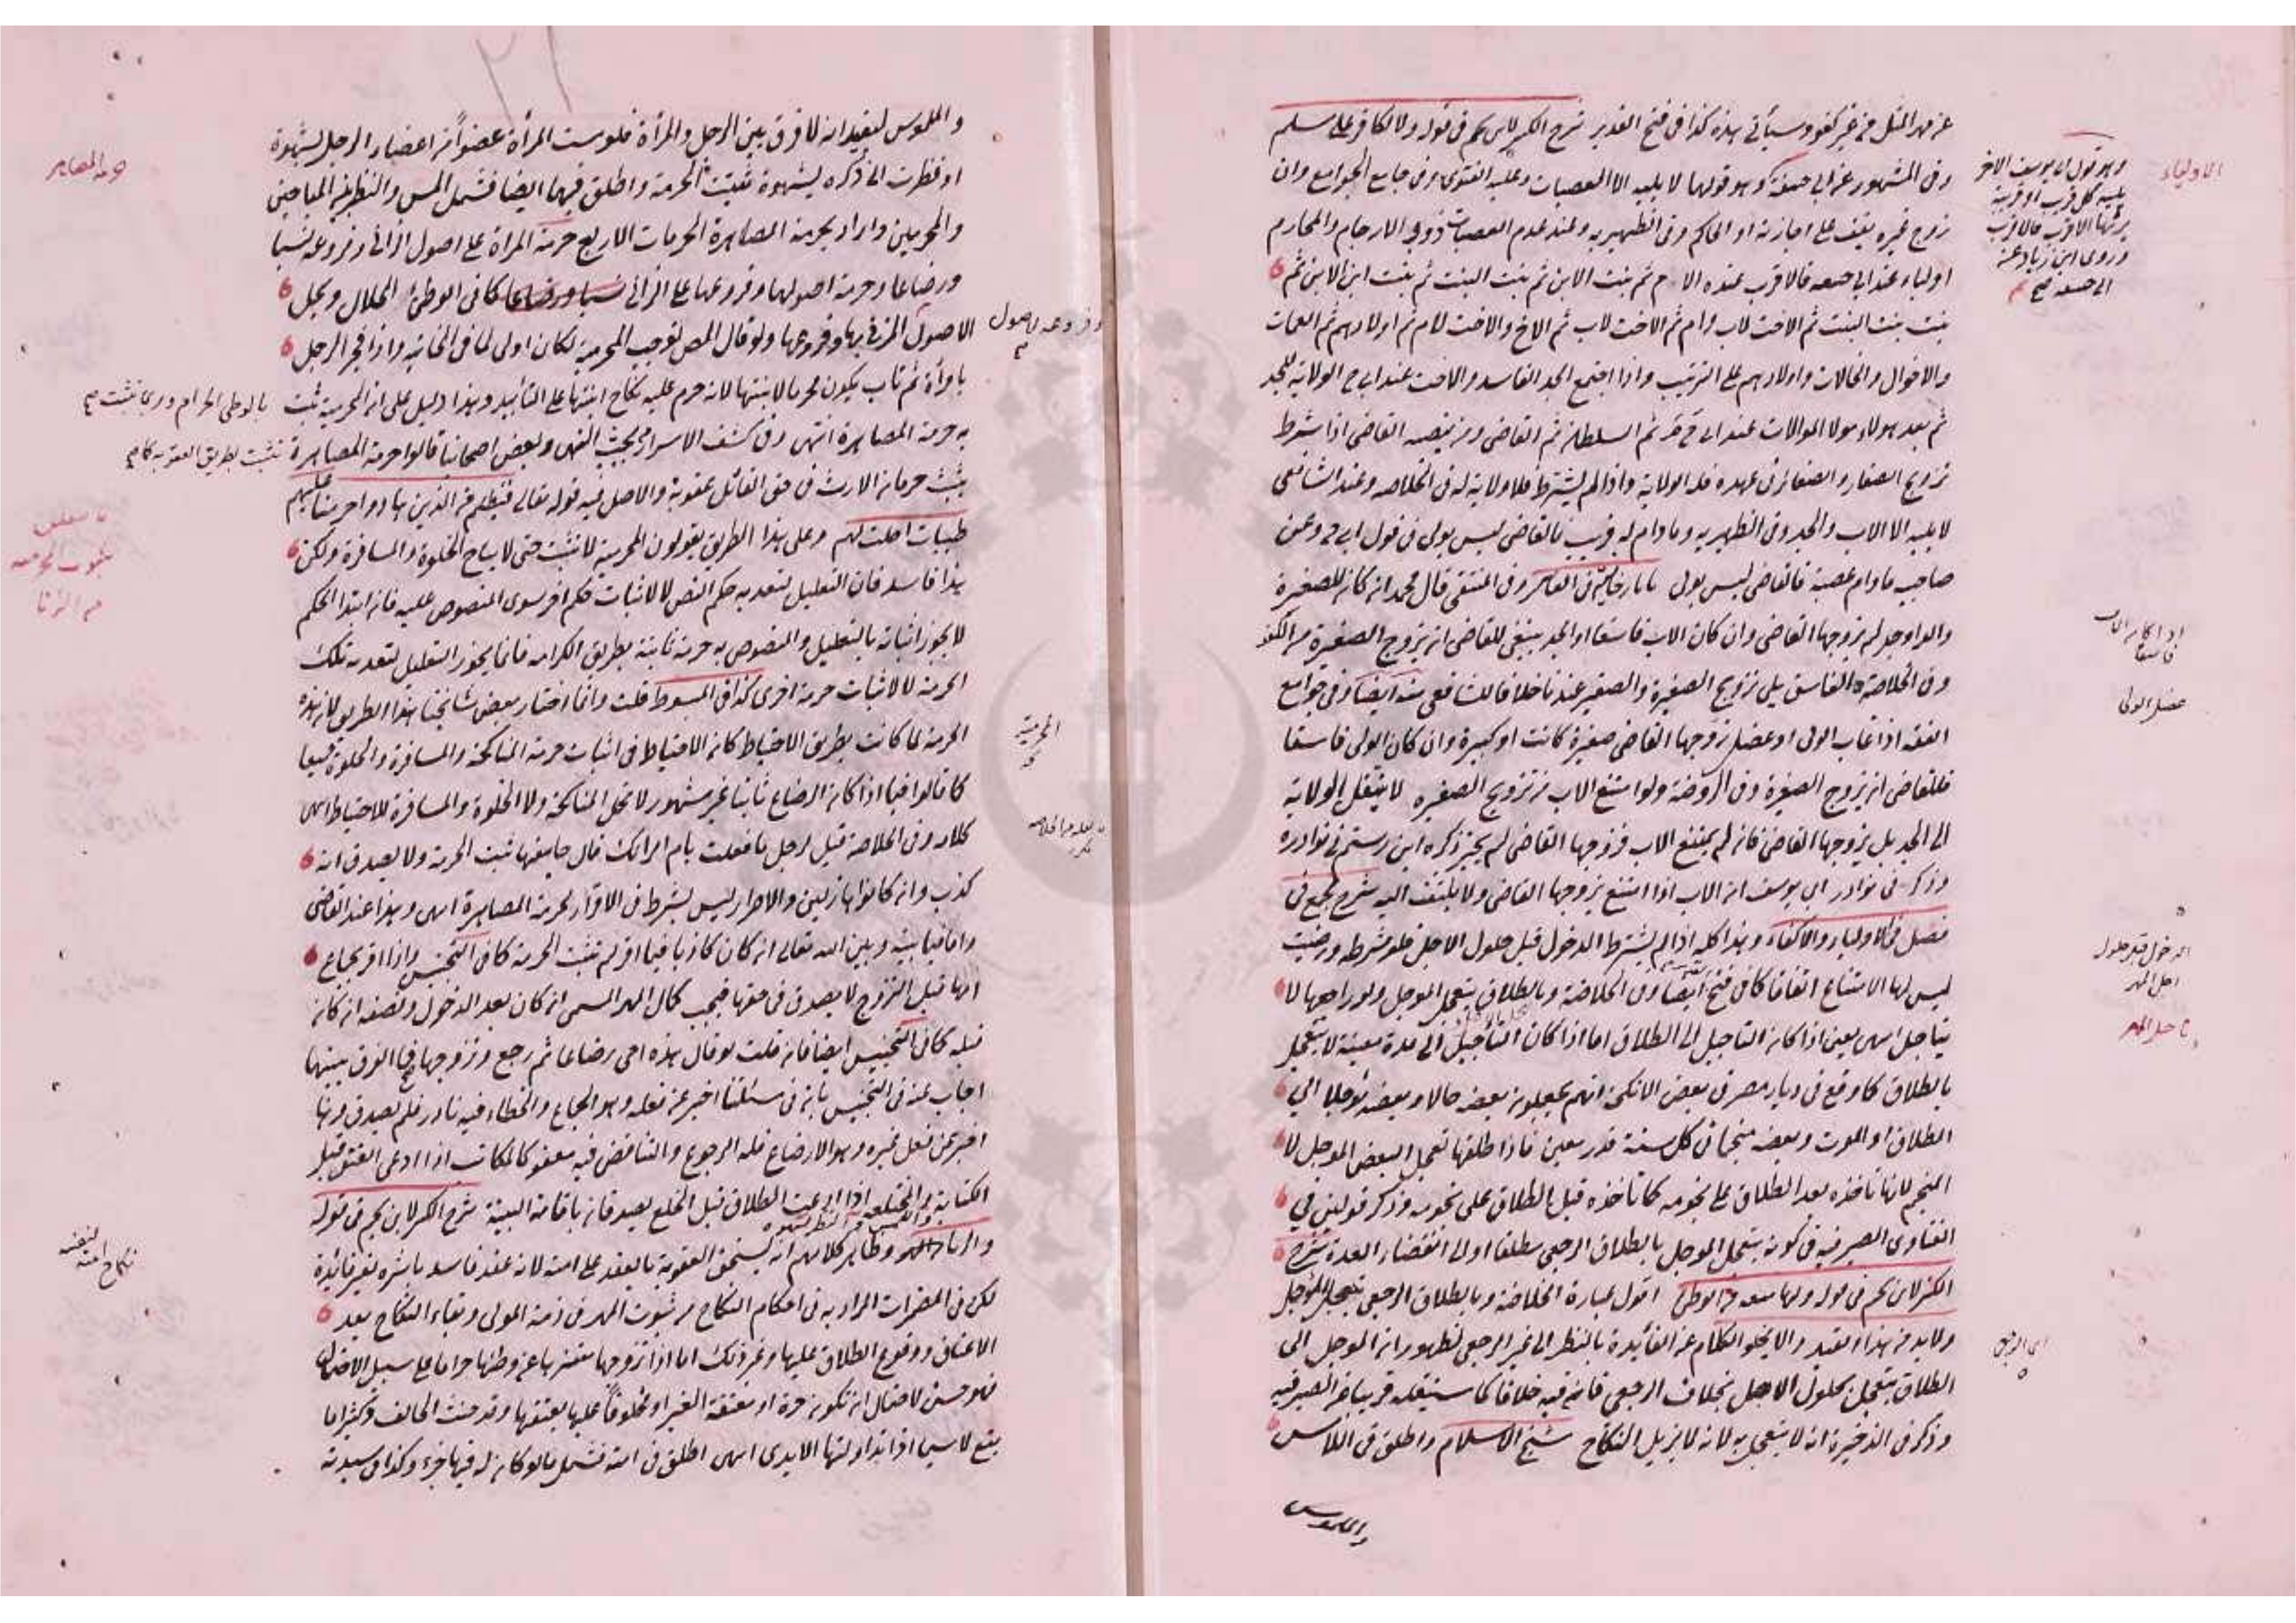 عن مهر المثل من غير كفو وسيأتي هذه كذا في فتح القدير شرح الكنز لابن نجيم في قوله ولا لكافر على مسلم
وفي المشهور عن ابي حنيفة وهو قولهما لا يليه الا العصبات وعليه الفتوى وفي جامع الجوامع وان
زوج غيره يقف على اجازته او الحاكم وفي الظهيرية وعند عدم العصبات ذوي الارحام والمحارم
اولياء عند ابي حنيفة فالاقرب عنده الام ثم بنت الابن ثم بنت البنت ثم بنت ابن الابن ثم
بنت بنت البنت ثم الاخت لاب وام ثم الاخت لاب ثم الاخ والاخت لام ثم اولادهم ثم العمات
والاخوال والخالات واولادهم على الترتيب واذا اجتمع الجد الفاسد والاخت عند ابي ح الولاية للجد
ثم بعد هولاء مولا الموالات عند ابي ح ثم السلطان ثم القاضي ومن ينصبه القاضي اذا شرط
تزويج الصغار والصغائر في عهده فله الولاية واذا لم يشترط فلا ولاية له في الخلاصه وعند الشافعي
لا يليه الا الاب والجد وفي الظهيريه ومادام له قريب فالقاضي ليس بولي في قول ابي ح وعن
صاحبيه مادام عصبة فالقاضي ليس بولي تاتارخانية في العاشر وفي المنتقى قال محمد ان كان للصغيرة
والد او جد لم يزوجها القاضي وان كان الاب فاسقا او الجد ينبغي للقاضي ان يزوج الصغيرة من الكفو
وفي الخلاصة والفاسق يلي تزويج الصغيرة والصغير عندنا خلافا للشافعي منه ايضا وفي جوامع
الفقه اذا غاب الولي او عضل زوجها القاضي صغيرة كانت او كبيرة وان كان الولي فاسقا
فللقاضي ان يزوج الصغيرة وفي الروضة ولو امتنع الاب من تزويج الصغيره لا ينتقل الولاية
الى الجد بل يزوجها القاضي فان لم يمتنع الاب فزوجها القاضي لم يجز ذكره ابن رستم في نوادره
وذكر في نوادر ابي يوسف ان الاب اذا امتنع يزوجها القاضي ولا يلتفت اليه شرح مجمع في
فصل في الاولياء والاكفاء وهذا كله اذا لم يشترط الدخول قبل حلول الاجل فلو شرطه ورضيت
ليس لها الامتناع اتفاقا كما في فتح ايضا وفي الخلاصة وبالطلاق يتعجل الموجل ولو راجعها لا
يتاجل انتهى يعني اذا كان التاجيل الى الطلاق اما اذا كان التأجيل الى مدة معينة لا يتعجل
بالطلاق كما وقع في ديار مصر في بعض الانكحة انهم يجعلون بعضه حالا وبعضه مؤجلا الي
الطلاق او الموت وبعضه منجما في كل سنة قدر معين فاذا طلقها تعجل البعض الموجل لا
المنجم لانها تاخذه بعد الطلاق على نجومه كما تاخذه قبل الطلاق على نجومه وذكر قولين في
الفتاوى الصيرفيه في كونه يتعجل الموجل بالطلاق الرجعي مطلقا او الى انقضاء العدة شرح
الكنز لابن نجم في قوله ولها منعه من الوطئ اقول عبارة الخلاصة وبالطلاق الرجعي يتعجل المؤجل
ولابد من هذا القيد والا يخلو الكلام عن الفائدة بالنظر الى غير الرجعي لظهور ان الموجل الى
الطلاق يتعجل بحلول الاجل بخلاف الرجعي فانه فيه خلافا كما سينقله قريبا عن الصيرفيه
وذكر في الذخيرة انه لا يتعجل به لانه لا يزيل النكاح شيخ الاسلام واطلق في اللامس
والملموس
الاولياء
وهو قول ابي يوسف الاخر
يليه كل قريب او قريبة
يرثها الاقرب فالاقرب
وروى ابن زياد عنه
ابي حنيفه صح
اذا كان الاب
فاسقا
عضل الولي
الدخول قبل حلول
اجل المهر
تاجيل المهر
اي الرجعي
والملموس ليفيد انه لا فرق بين الرجل والمرأة فلو مست المرأة عضوا من اعضاء الرجل بشهوة
او نظرت الى ذكره بشهوة ثبتت الحرمة واطلق فيهما ايضا فشمل المس والنظر المباحين
والمحرمين واراد بحرمة المصاهرة الحرمات الاربع حرمة المراة على اصول الزاني وفروعه نسبا
ورضاعا وحرمة اصولها وفروعها على الزاني نسبا ورضاعا كما في الوطئ الحلال ويحل
لاصول المزني بها وفروعها ولو قال المص توجب المحرمية لكان اولى لما في الخانيه واذا فجر الرجل
بامرأة ثم تاب يكون محرما لابنتها لانه حرم عليه نكاح ابنتها على التأبيد وهذا دليل على ان المحرمية تثبت
به حرمة المصاهرة انتهى وفي كشف الاسرار في بحث النهي وبعض اصحابنا قالوا حرمة المصاهرة
يثبت حرمان الارث في حق القاتل عقوبة والاصل فيه قوله تعالى فبظلم من الذين هادوا حرمنا عليهم
طيبات احلت لهم وعلى هذا الطريق يقولون المحرمية لا تثبت حتى لا يباح الخلوة والمسافرة ولكن
هذا فاسد فان التعليل لتعديه حكم النص لا لاثبات حكم اخر سوى المنصوص عليه فان ابتدا الحكم
لا يجوز اثباته بالتعليل والمنصوص به حرمة ثابتة بطريق الكرامه فانما يجوز التعليل لتعديه تلك
الحرمة لا لاثبات حرمة اخرى كذا في المبسوط قلت وانما اختار بعض مشائخنا هذا الطريق لان هذه
الحرمة لما كانت بطريق الاحتياط كان الاحتياط في اثبات حرمة المناكحة والمسافرة والخلوة جميعا
كما قالوا فيما اذا كان الرضاع ثابتا غير مشهور لا تحل المناكحة ولا الخلوة والمسافرة للاحتياط انتهى
كلامه وفي الخلاصة قيل لرجل ما فعلت بام امراتك قال جامعتها ثبت الحرمة ولا يصدق انه
كذب وان كانوا هازلين والاصرار ليس بشرط في الاقرار لحرمة المصاهرة انتهى وهذا عند القاضي
واما فيما بينه وبين الله تعالى ان كان كاذبا فيما اقر لم تثبت الحرمة كما في التجنيس واذا اقر بجماع
امها قبل التزوج لا يصدق في حقها فيجب كمال المهر المسمى ان كان بعد الدخول ونصفه ان كان
قبله كما في التجنيس ايضا فان قلت لو قال هذه امي رضاعا ثم رجع وتزوجها صح فما الفرق بينهما
اجاب عنه في التجنيس بانه في مسئلتنا اخبر عن فعله وهو الجماع والخطاء فيه نادر فلم يصدق وهنا
اخبر عن فعل غيره وهو الارضاع فله الرجوع والتناقض فيه معفو كالمكاتب اذا ادعى العتق قبل
الكتابة والمختلعه اذا ادعت الطلاق قبل الخلع يصدقان باقامة البينة شرح الكنز لابن نجيم في قوله
والزنا واللمس والنظر بشهوة وظاهر كلامهم انه يستحق العقوبة بالعقد على امته لانه عقد فاسد باشره بغير فائدة
لكن في المضمرات المراد به في احكام النكاح من ثبوت المهر في ذمة المولى وبقاء النكاح بعد
الاعتاق ووقوع الطلاق عليها وغير ذلك اما اذا تزوجها متنزها عن وطئها حراما على سبيل الاحتمال
فهو حسن لاحتمال ان تكون حرة او معتقة الغير او محلوفا عليها بعتقها وقد حنث الحالف وكثيرا ما
يقع لاسيما اذا تداولتها الايدي انتهى اطلق في امته فشمل ما لو كان له فيها جزء وكذا في سيدته
حرمة المصاهرة
وفروعه لاصول
بالوطئ الحرام وبما تثبت صح
تثبت بطريق العقوبة كما صح
ما يتعلق
بثبوت المحرمية
من الزنا
المحرمية
نكاح امته